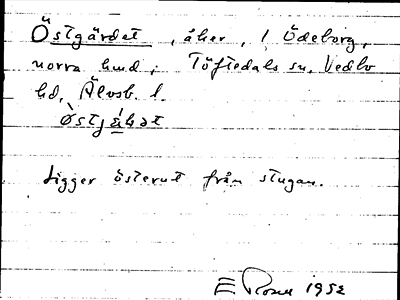 Östgärdet, åker, i Ödeborg,
norra hmd; Töftedals sn, Vedbo
hd, Älvsb. l.
Ligger österut från stugan.
E Rosell 1952